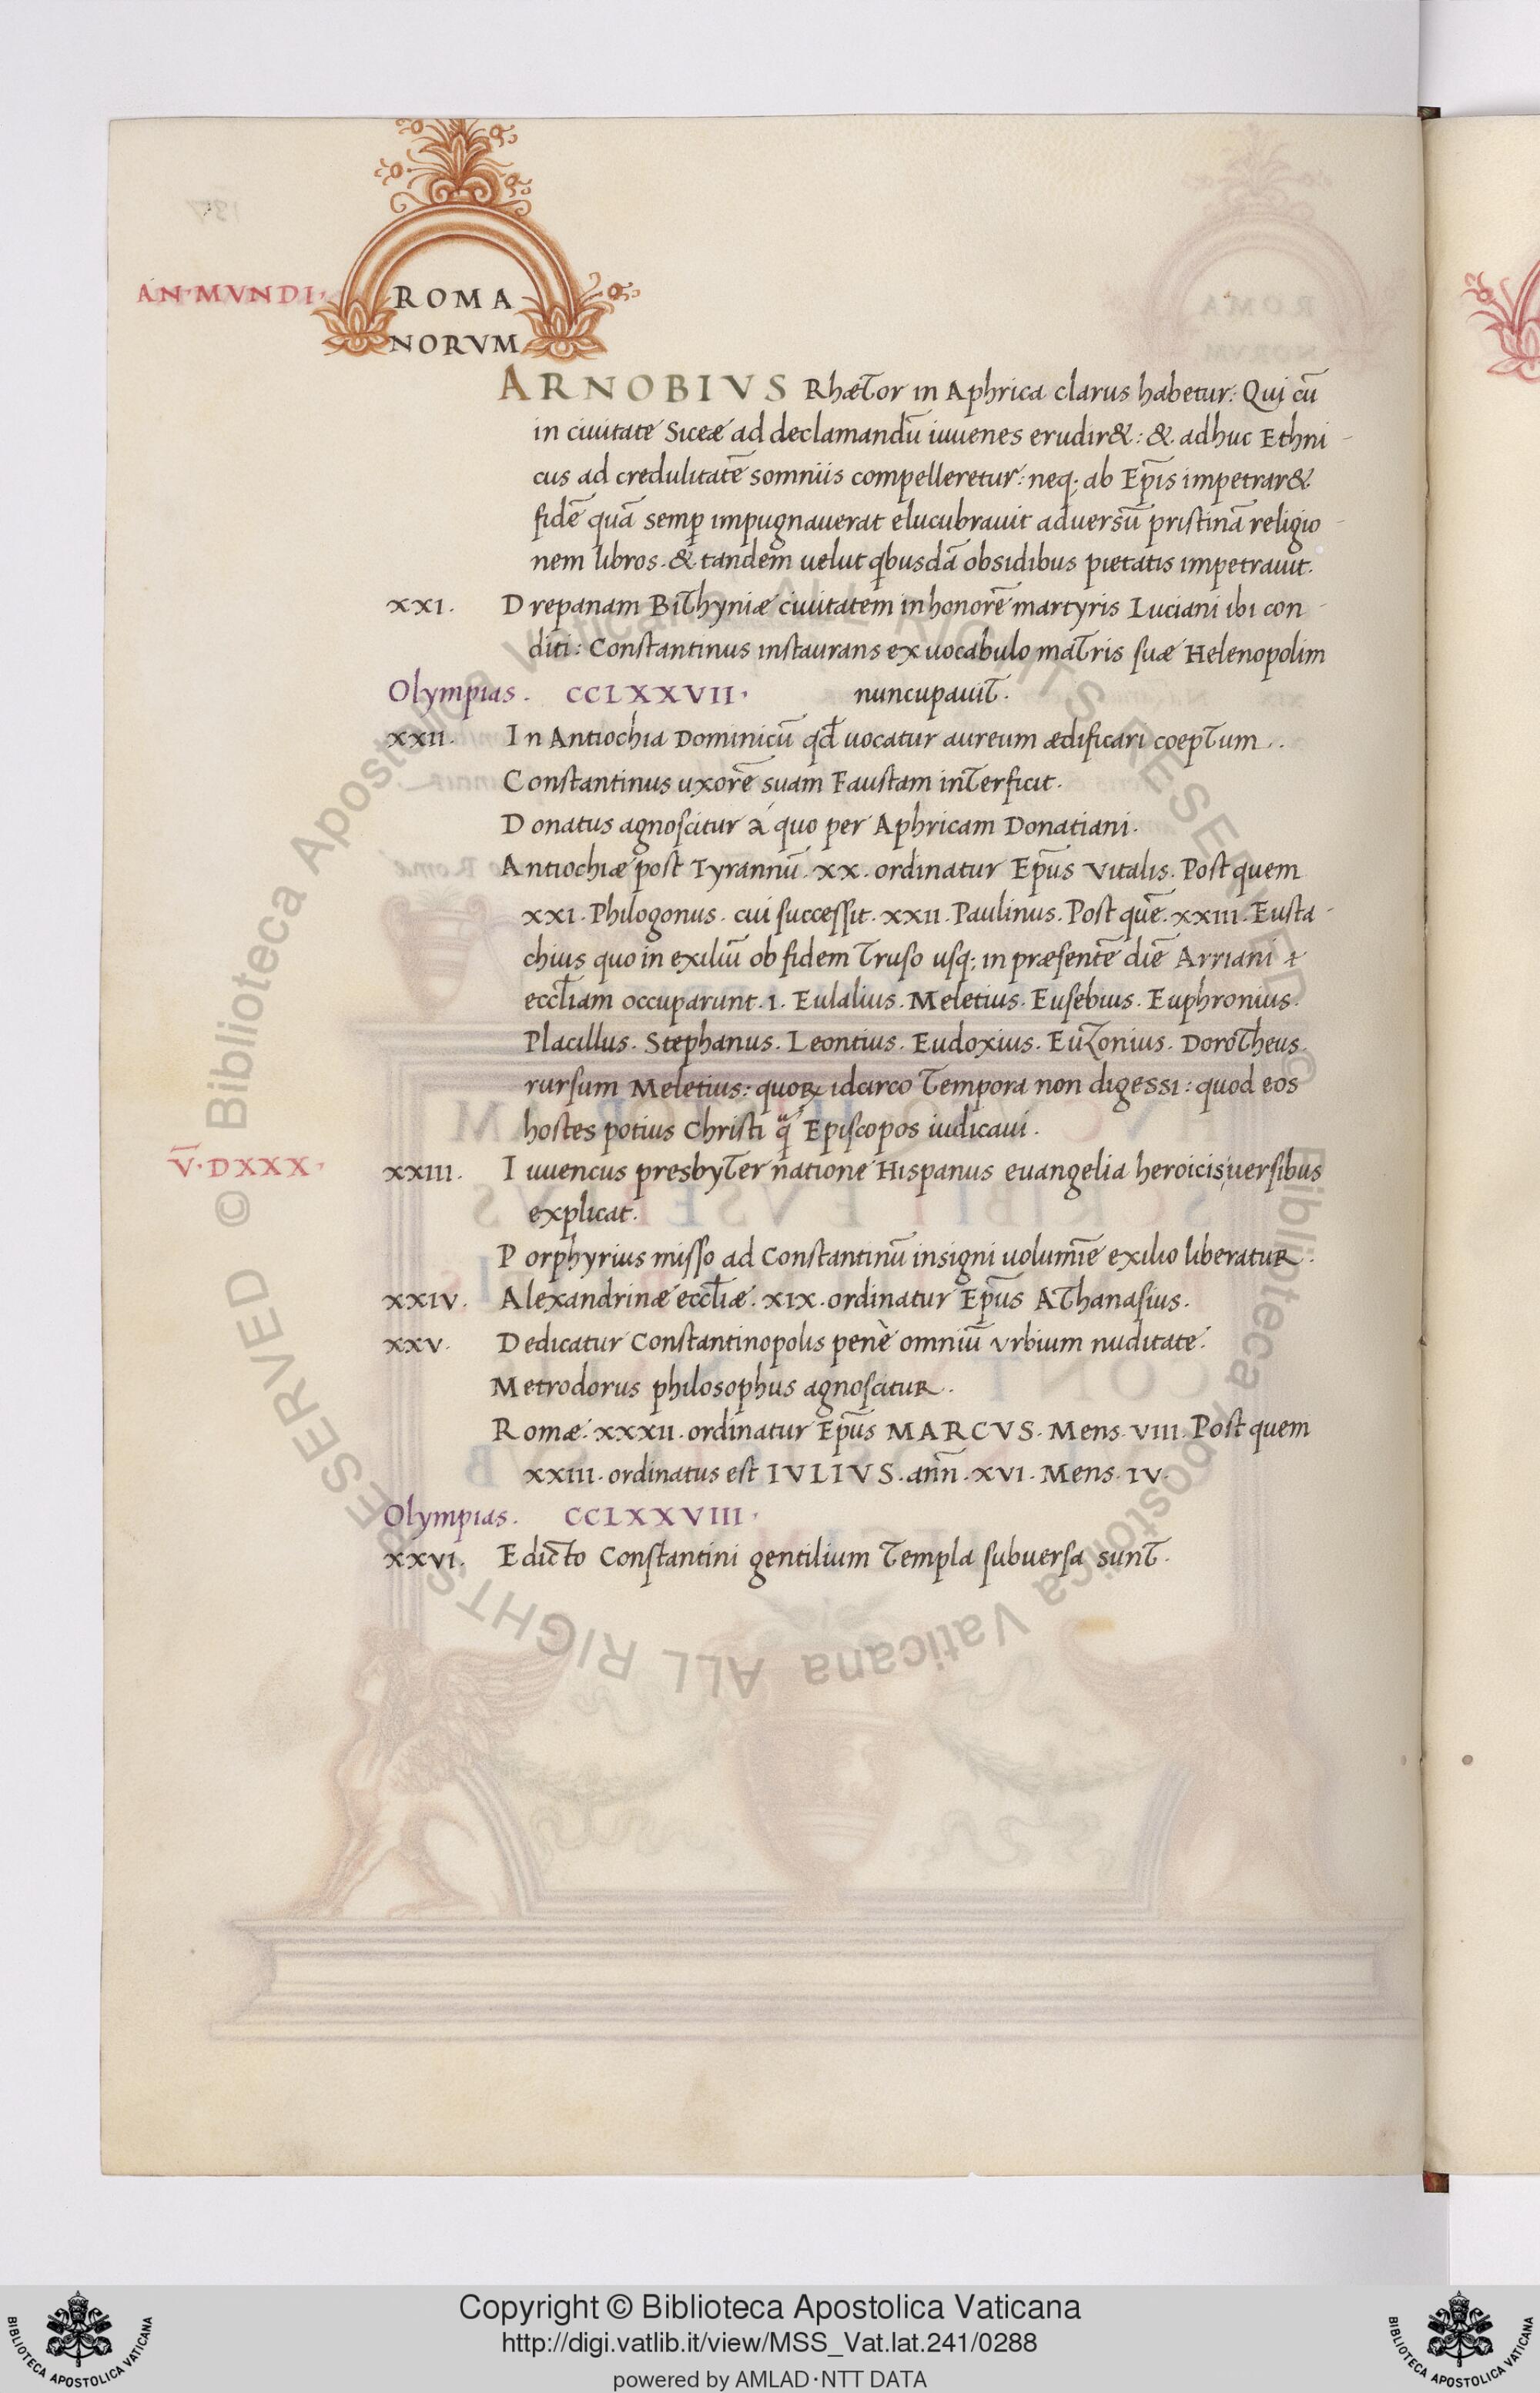 AN·MVNDI·
ROMA
NORVM
ARNOBIVS Rhætor in Aphrica clarus habetur: Qui cū
in ciuitate Siceæ ad declamandū iuuenes erudir&: & adhuc Ethni-
cus ad credulitatē somniis compelleretur: neq; ab Ep̄is impetrar&
fidē quā semp̱ impugnauerat elucubrauit aduersū pristinā religio-
nem libros. & tandem uelut qbusdā obsidibus pietatis impetrauit.
XXI. Drepanam Bithyniæ ciuitatem in honorē martyris Luciani ibi con-
diti: Constantinus instaurans ex uocabulo matris suæ Helenopolim
Olympias. CCLXXVII. nuncupauit.
XXII. In Antiochia Dominicū qd̄ uocatur aureum ædificari coeptum.
Constantinus uxorē suam Faustam interficit.
Donatus agnoscitur à quo per Aphricam Donatiani.
Antiochiæ post Tyrannū. XX. ordinatur Ep̄us Vitalis. Post quem
XXI. Philogonus. cui successit. XXII. Paulinus. Post quē. XXIII. Eusta-
chius quo in exiliū ob fidem truso usq; in præsentē diē Arriani
eccl̄iam occuparunt. I. Eulalius. Meletius. Eusebius. Euphronius.
Placillus. Stephanus. Leontius. Eudoxius. Euzonius. Dorotheus.
rursum Meletius: quoꝝ idcirco tempora non digessi: quod eos
hostes potius Christi q̄ Episcopos iudicaui.
V̄·DXXX· XXIII. Iuuencus presbyter natione Hispanus euangelia heroicis uersibus
explicat.
Porphyrius misso ad Constantinū insigni uolumīe exilio liberatur.
XXIV. Alexandrinæ eccl̄iæ. XIX. ordinatur Ep̄us Athanasius.
XXV. Dedicatur Constantinopolis penè omniū Vrbium nuditate.
Metrodorus philosophus agnoscitur.
Romæ. XXXII. ordinatur Ep̄us MARCVS. Mens. VIII. Post quem
XXIII. ordinatus est IVLIVS. ann̄. XVI. Mens. IV.
Olympias. CCLXXVIII.
XXVI. Edicto Constantini gentilium templa subuersa sunt.
© Biblioteca Apostolica Vaticana ALL RIGHTS RESERVED © Biblioteca Apostolica Vaticana ALL RIGHTS RESERVED
Copyright © Biblioteca Apostolica Vaticana
http://digi.vatlib.it/view/MSS_Vat.lat.241/0288
powered by AMLAD·NTT DATA
BIBLIOTECA APOSTOLICA VATICANA
BIBLIOTECA APOSTOLICA VATICANA